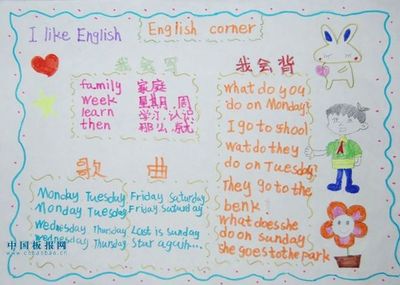 I like English
English corner
我会写
family 家庭
week 星期,周
learn 学习,认识
then 那么,就
歌曲
Monday Tuesday Friday Saturday
Monday Tuesday Friday Saturday
Wednesday Thursday Last is sunday
Wednesday Thursday Star again...
我会背
what do you
do on Monday?
I go to shool
wat do they
do on Tuesday?
They go to the
benk
what does she
do on sunday
she goes to the park
中国板报网